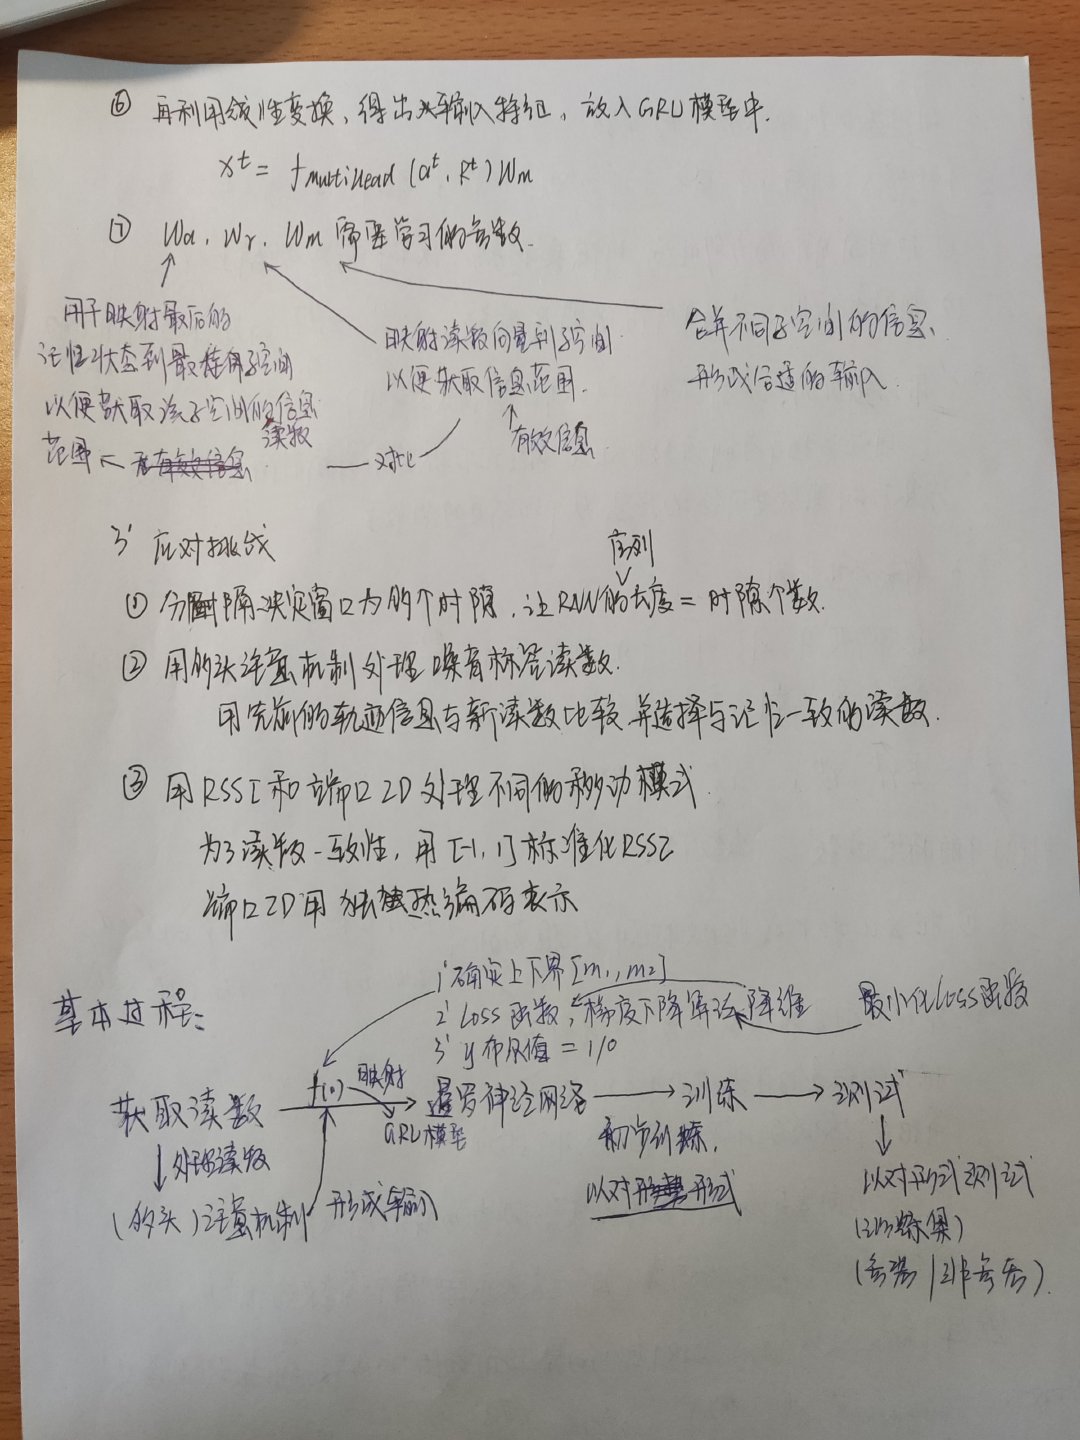 ⑥ 再利用线性变换,得出次输入特征,放入GRU模型中.
x^t = f_multiHead (a^t, R^t) W_m
⑦ Wa, Wr, Wm 需要学习的参数.
用于映射最后的
记忆状态到最佳子空间
以便获取该子空间的信息
读数
范围
映射读数向量到子空间
以便获取信息范围.
有效信息
对比
合并不同子空间的信息,
形成合适的输入.
3' 应对挑战
序列
① 分隔决定窗口为多个时隙,让RNN的长度=时隙个数.
② 用多头注意机制处理噪音标签读数.
用先前的轨迹信息与新读数比较并选择与记忆一致的读数.
③ 用RSSI和端口ID处理不同的移动模式
为了读数一致性,用[-1,1]标准化RSSI
端口ID用独热编码表示
基本过程:
1' 确定上下界[m1,m2]
2' Loss函数,梯度下降算法降维
最小化Loss函数
3' y布尔值=1/0
获取读数
f(·)
映射
GRU模型
神经网络
训练
测试
处理读数
初步训练,
以对形式
(多头)注意机制
形成输入
以对形式测试
(训练集)